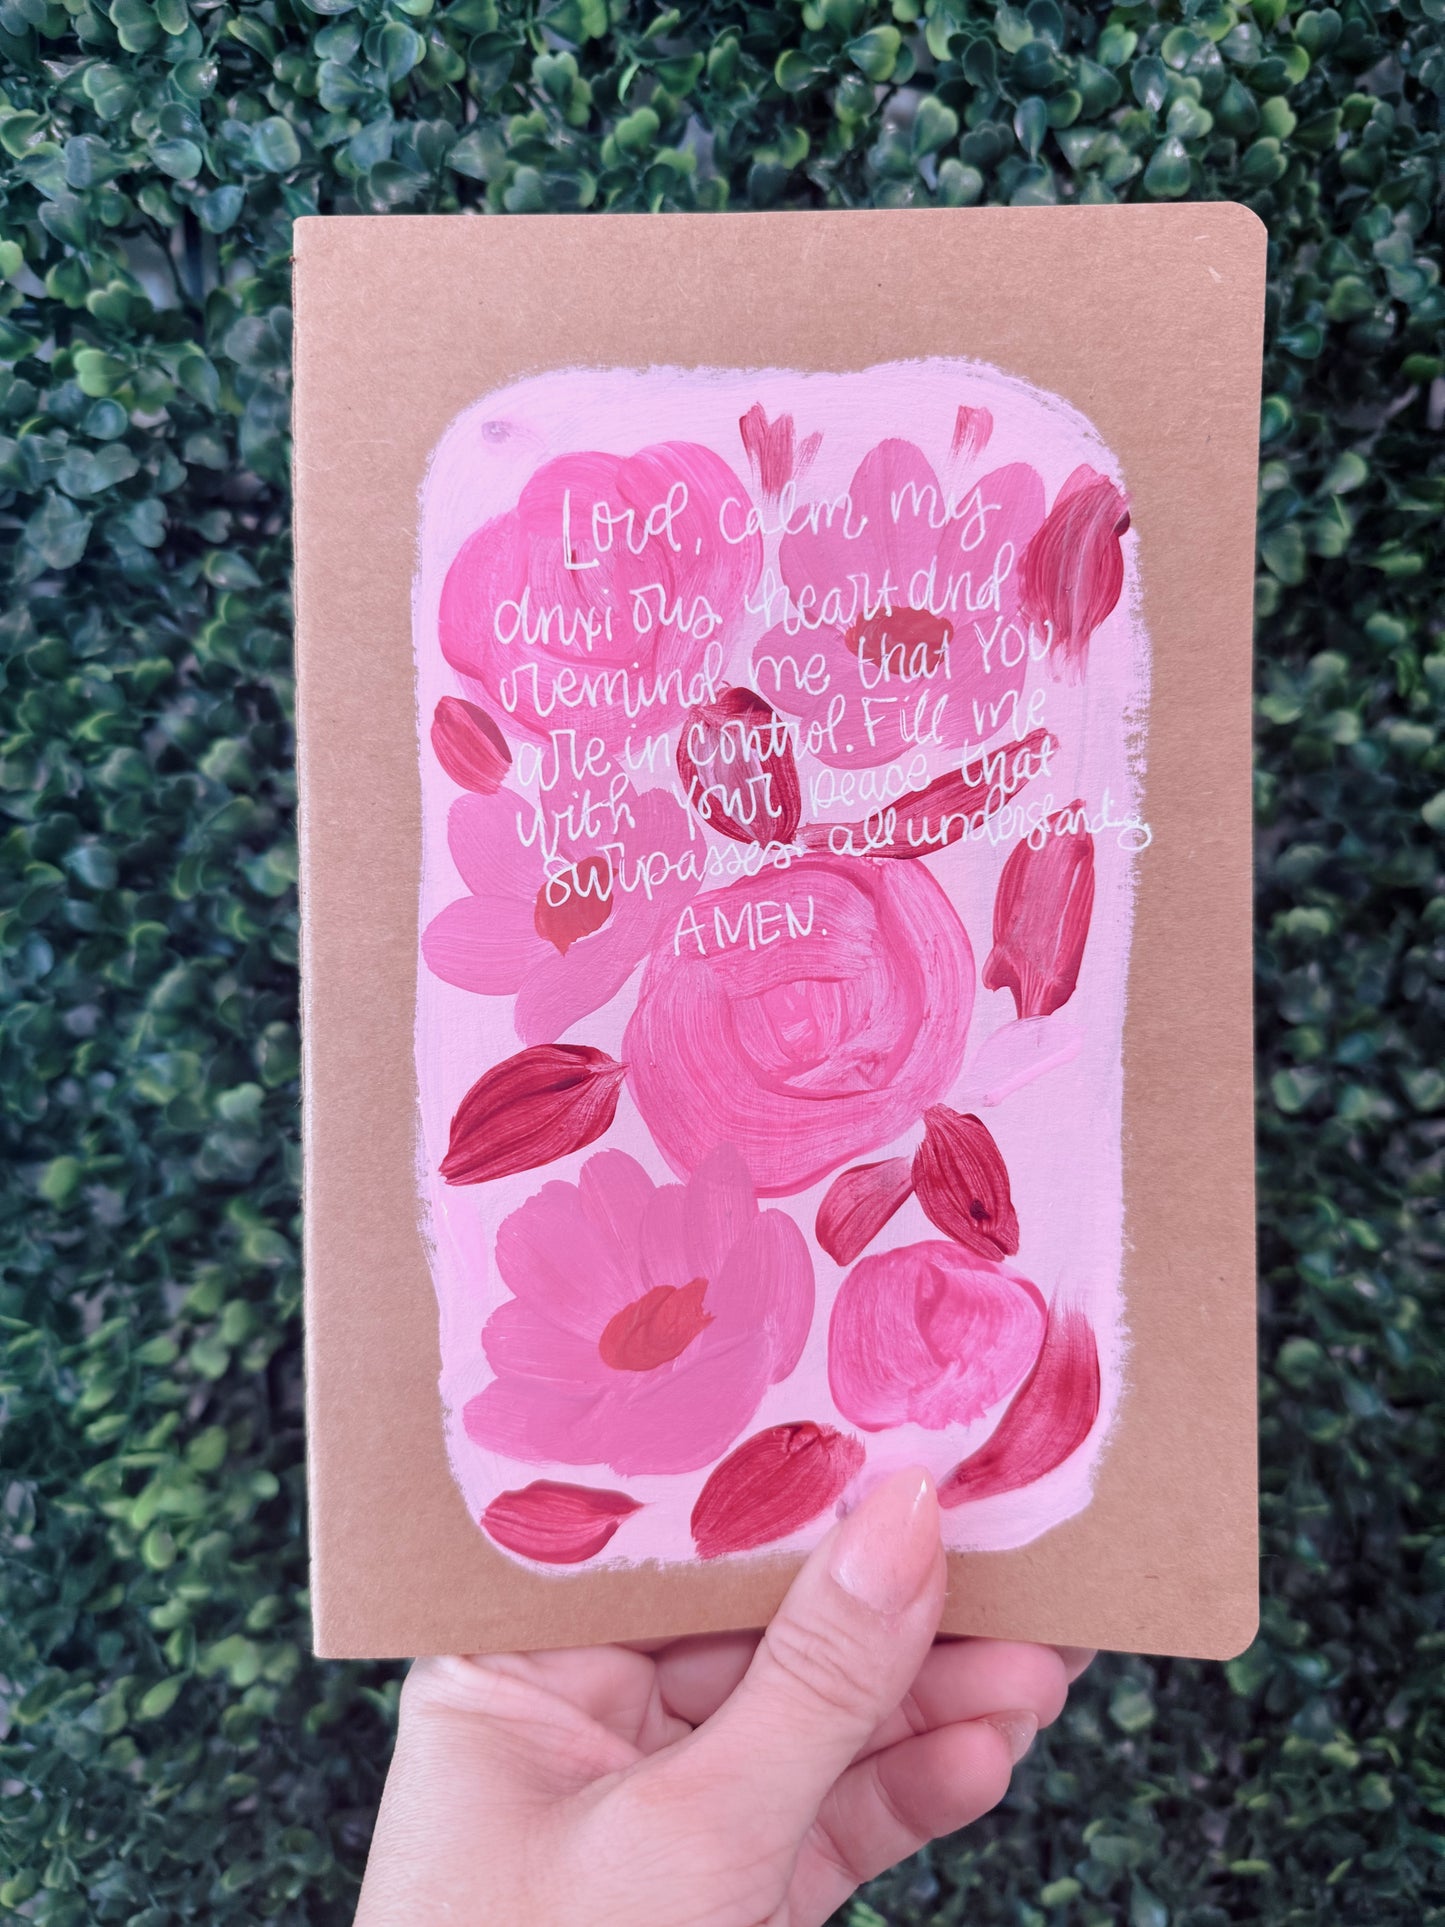 Lord, calm my
anxious heart and
remind me that You
are in control. Fill me
with Your peace that
surpasses all understanding
AMEN.